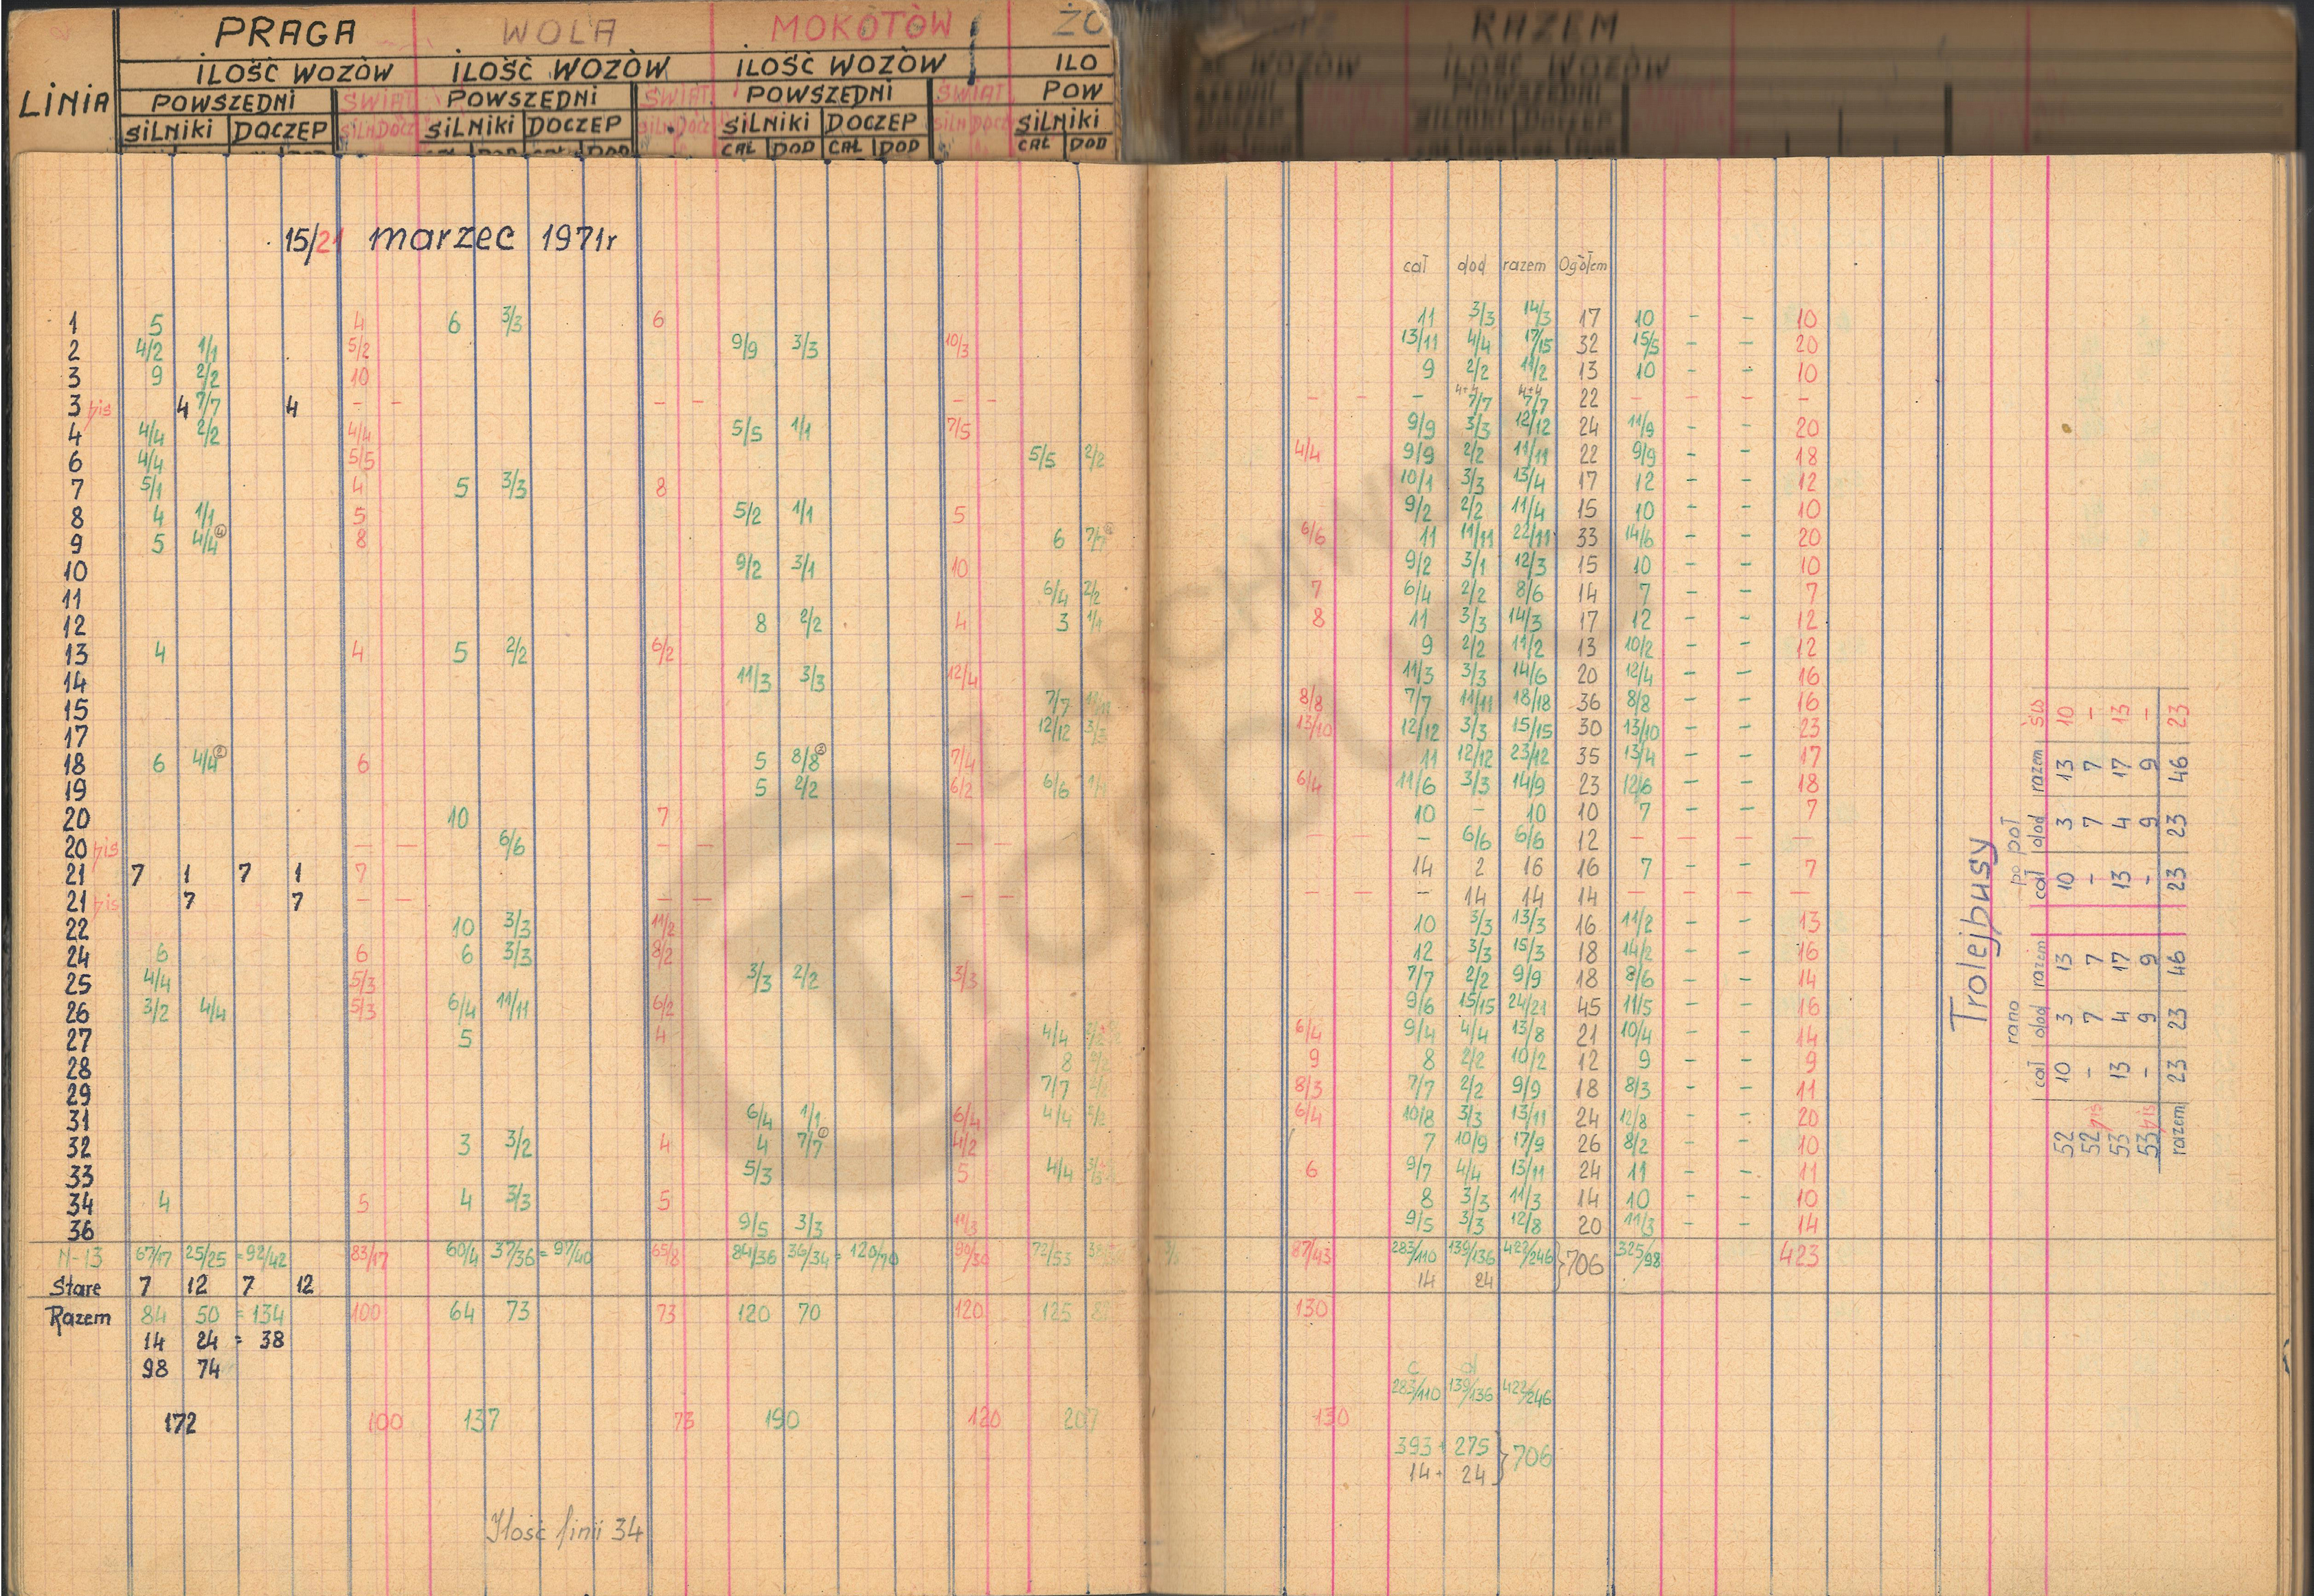 PRAGA WOLA MOKOTÓW ŻO RAZEM
LINIA ILOŚĆ WOZÓW ILOŚĆ WOZÓW ILOŚĆ WOZÓW ILO WOZÓW ILOŚĆ WOZÓW
POWSZEDNI ŚWIĄT POWSZEDNI ŚWIĄT POWSZEDNI ŚWIĄT POW POWSZEDNI
SILNIKI DOCZEP SILN DOCZ SILNIKI DOCZEP SILN DOCZ SILNIKI DOCZEP SILN DOCZ SILNIKI
CAŁ DOD CAŁ DOD CAŁ DOD CAŁ DOD CAŁ DOD
15/21 marzec 1971r
cał dod razem Ogółem
1 5 4 6 3/3 6 11 3/3 14/3 17 10 - - 10
2 4/2 1/1 5/2 9/9 3/3 10/3 13/11 4/4 17/15 32 15/5 - - 20
3 9 2/2 10 9 2/2 11/2 13 10 - - 10
3 bis 4 7/7 4 - - - - - - - - - 4+4 7/7 4+4 7/7 22 - - - -
4 4/4 2/2 4/4 5/5 1/1 7/5 9/9 3/3 12/12 24 11/9 - - 20
6 4/4 5/5 5/5 2/2 4/4 9/9 2/2 11/11 22 9/9 - - 18
7 5/1 4 5 3/3 8 10/1 3/3 13/4 17 12 - - 12
8 4 1/1 5 5/2 1/1 5 9/2 2/2 11/4 15 10 - - 10
9 5 4/4 8 6 7/7 6/6 11 11/11 22/11 33 14/6 - - 20
10 9/2 3/1 10 9/2 3/1 12/3 15 10 - - 10
11 6/4 2/2 7 6/4 2/2 8/6 14 7 - - 7
12 8 2/2 4 3 1/1 8 11 3/3 14/3 17 12 - - 12
13 4 4 5 2/2 6/2 9 2/2 11/2 13 10/2 - - 12
14 11/3 3/3 12/4 11/3 3/3 14/6 20 12/4 - - 16
15 7/7 11/11 8/8 7/7 11/11 18/18 36 8/8 - - 16
17 12/12 3/3 13/10 12/12 3/3 15/15 30 13/10 - - 23
18 6 4/4 6 5 8/8 7/4 11 12/12 23/12 35 13/4 - - 17
19 5 2/2 6/2 6/6 1/1 6/4 11/6 3/3 14/9 23 12/6 - - 18
20 10 7 10 - 10 10 7 - - 7
20 bis - - 6/6 - - - - - - - 6/6 6/6 12 - - - -
21 7 1 7 1 7 14 2 16 16 7 - - 7
21 bis 7 7 - - - - - - - - - 14 14 14 - - - -
22 10 3/3 11/2 10 3/3 13/3 16 11/2 - - 13
24 6 6 6 3/3 8/2 12 3/3 15/3 18 14/2 - - 16
25 4/4 5/3 3/3 2/2 3/3 7/7 2/2 9/9 18 8/6 - - 14
26 3/2 4/4 5/3 6/4 11/11 6/2 9/6 15/15 24/21 45 11/5 - - 16
27 5 4 4/4 6/4 9/4 4/4 13/8 21 10/4 - - 14
28 8 9 8 2/2 10/2 12 9 - - 9
29 7/7 8/3 7/7 2/2 9/9 18 8/3 - - 11
31 6/4 1/1 6/4 4/4 6/4 10/8 3/3 13/11 24 12/8 - - 20
32 3 3/2 4 4 7/7 4/2 7 10/9 17/9 26 8/2 - - 10
33 5/3 5 4/4 6 9/7 4/4 13/11 24 11 - - 11
34 4 5 4 3/3 5 8 3/3 11/3 14 10 - - 10
36 9/5 3/3 11/3 9/5 3/3 12/8 20 11/3 - - 14
N-13 67/17 25/25 = 92/42 83/17 60/4 37/36 = 97/40 65/8 84/36 36/34 = 120/70 90/30 72/53 87/43 283/110 139/136 422/246 } 706 325/98 423
Stare 7 12 7 12 14 24
Razem 84 50 = 134 100 64 73 73 120 70 120 125 130
14 24 = 38
98 74
c d
283/110 139/136 422/246
172 100 137 73 190 120 207 130
393 + 275 } 706
14 + 24
Ilość linii 34
Trolejbusy
rano po poł
cał dod razem cał dod razem św
52 10 3 13 10 3 13 10
52 bis - 7 7 - 7 7 -
53 13 4 17 13 4 17 13
53 bis - 9 9 - 9 9 -
razem 23 23 46 23 23 46 23